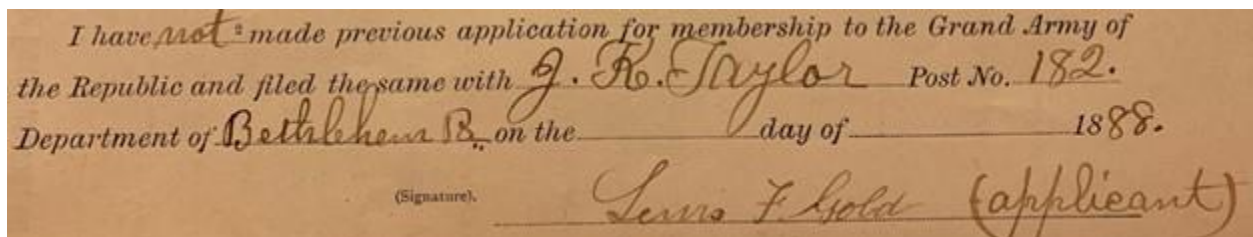 I have not ² made previous application for membership to the Grand Army of
the Republic and filed the same with J. K. Taylor Post No. 182.
Department of Bethlehem on the day of 1888.
(Signature). Lewis F. Gold (applicant)